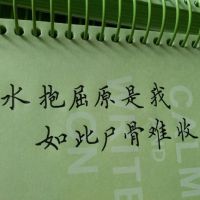 水抱屈原是我
如此尸骨难收
CALM
WHITE